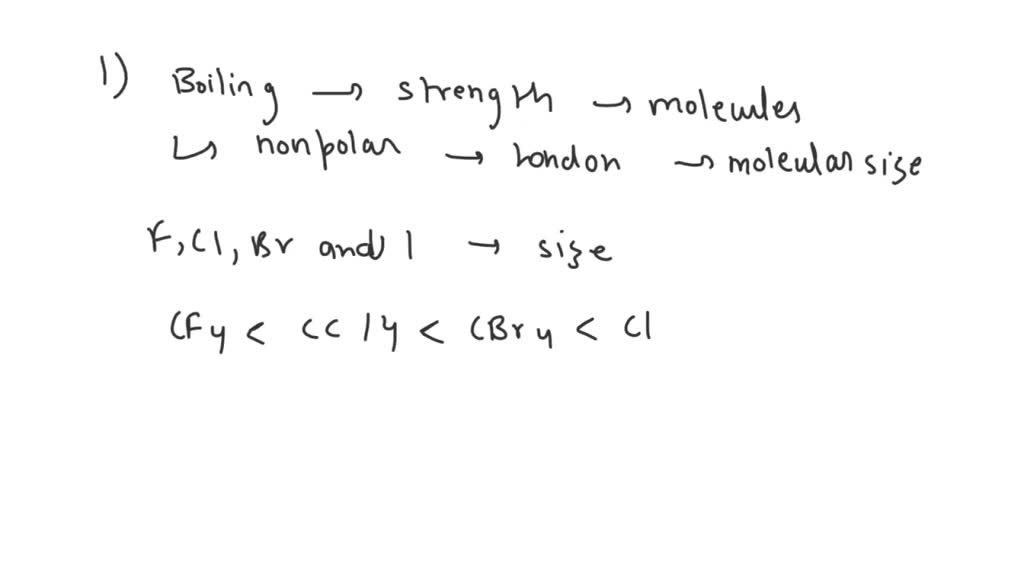 1) Boiling → strength → molecules
↳ nonpolar → London → molecular size
F, Cl, Br and I → size
CF4 < CCl4 < CBr4 < CI